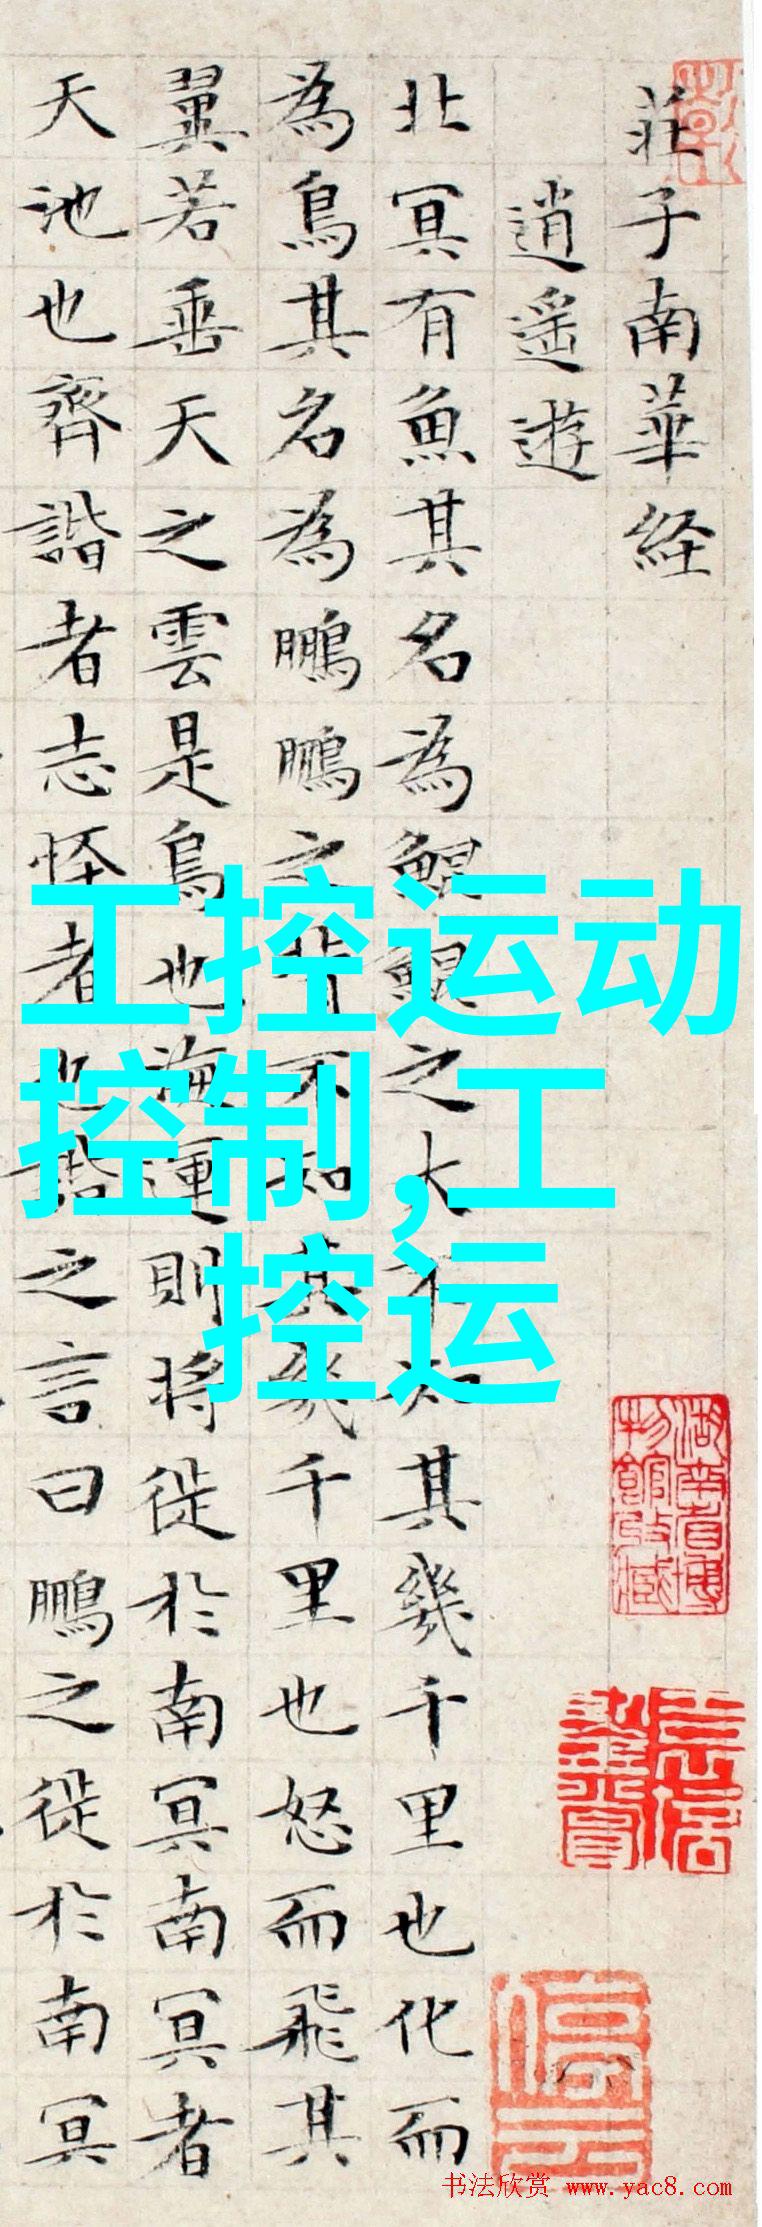 莊子南華経
逍遥遊
北冥有魚其名為鯤鯤之大不知其幾千里也化而
為鳥其名為鵬鵬之背不知其幾千里也怒而飛其
翼若垂天之雲是鳥也海運則将徙於南冥南冥者
天池也齊諧者志怪者也諧之言曰鵬之徙於南冥
工控运动
控制,工
控运
湖南省博
物館收藏
停云
书法欣赏 www.yac8.com